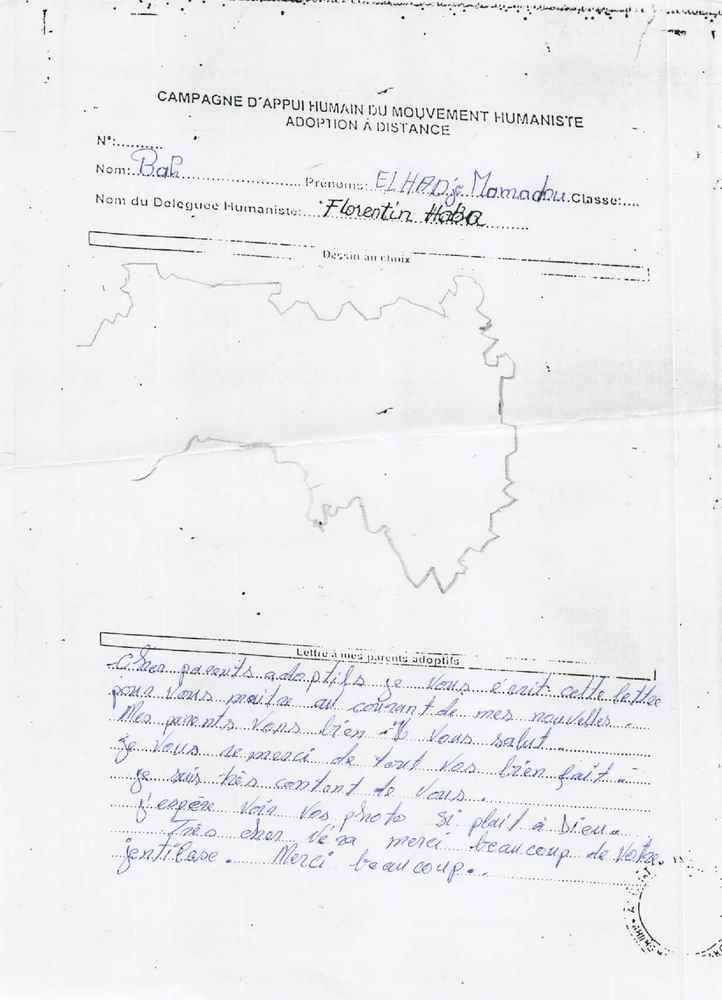 CAMPAGNE D'APPUI HUMAIN DU MOUVEMENT HUMANISTE
ADOPTION À DISTANCE
N°:..........
Nom: Bah Prénoms: ELHADje Mamadou Classe:....
Nom du Déléguée Humaniste: Florentin Haba
Dessin au choix
Lettre à mes parents adoptifs
Cher parents adoptifs je vous écrits cette lettre
pour vous maitre au courant de mes nouvelles.
Mes parents vons bien vous salut.
je vous remerci de tout vos bien fait.
je suis très content de vous.
j'espère voir vos photo si plait à Dieu.
Très cher Véra merci beaucoup de votre
jentilase. Merci beaucoup.